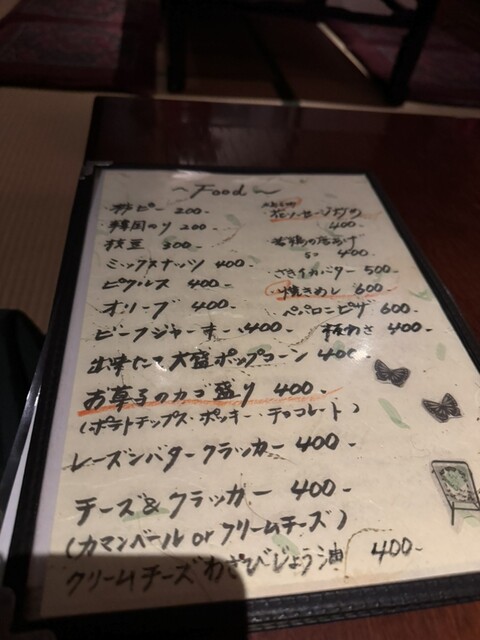 ～Food～
柿ピー 200-
韓国のり 200-
枝豆 300-
ミックスナッツ 400-
ピクルス 400-
オリーブ 400-
ビーフジャーキー 400-
出来たて大盛ポップコーン 400-
お菓子のカゴ盛り 400-
(ポテトチップス・ポッキー・チョコレート)
レーズンバタークラッカー 400-
チーズ&クラッカー 400-
(カマンベール or クリームチーズ)
クリームチーズわさびじょう油 400-
400-
若鶏の唐あげ
400-
さきイカバター 500-
焼きめし 600-
ペパロニピザ 600-
板わさ 400-